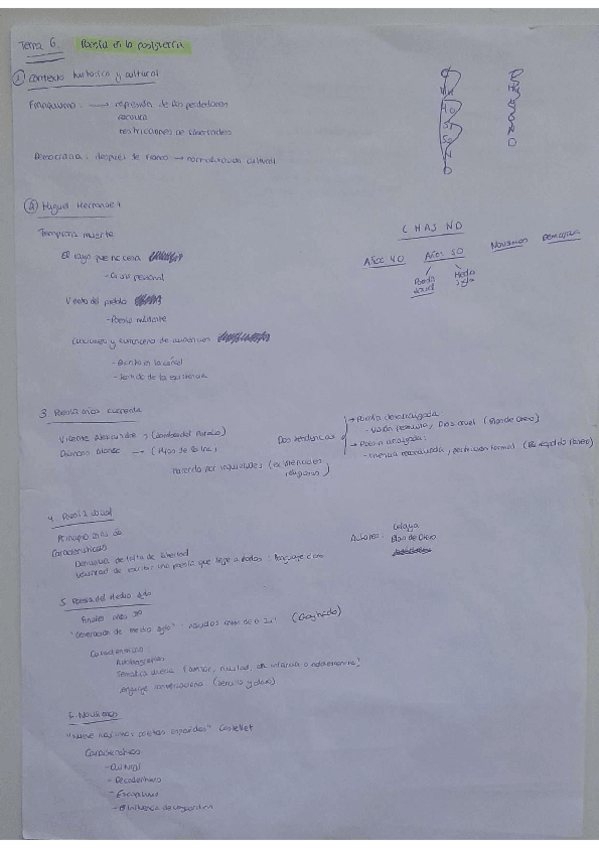 Tema 6. Poesía en la posguerra
1 Contexto histórico y cultural
Franquismo: → represión de los perdedores
censura
restricciones de libertades
Democracia: después de Franco → normalización cultural
2 Miguel Hernández
Temprana muerte
El rayo que no cesa
- Crisis personal
Viento del pueblo
- Poesía militante
Cancionero y romancero de ausencias
- Escrito en la cárcel
- Sentido de la existencia
C H A S N D
Años 40
Años 50
Novísimos
Democracia
Poesía social
Medio siglo
3. Poesía años cuarenta
Vicente Aleixandre → (Sombra del Paraíso)
Dámaso Alonso → (Hijos de la ira)
Marcado por inquietudes (existenciales religiosas)
Dos tendencias
→ Poesía desarraigada
- Visión pesimista, Dios cruel (Blas de Otero)
→ Poesía arraigada:
perfección formal (Leopoldo Panero)
4. Poesía social
Principio años 50
Características
Denuncia de falta de libertad
Voluntad de escribir una poesía que llege a todos: lenguaje claro
Autores: Celaya
Blas de Otero
5. Poesía del Medio siglo
Finales años 50
"Generación de medio siglo": nacidos
Características
Autobiografías
Temática diversa (amor, amistad, infancia o adolescencia)
Lenguaje conversacional (sencillo y claro)
6. Novísimos
"Nueve novísimos poetas españoles" Castellet
Características
- Cultural
- Decadentismo
- Escapismo
- Influencia de vanguardia